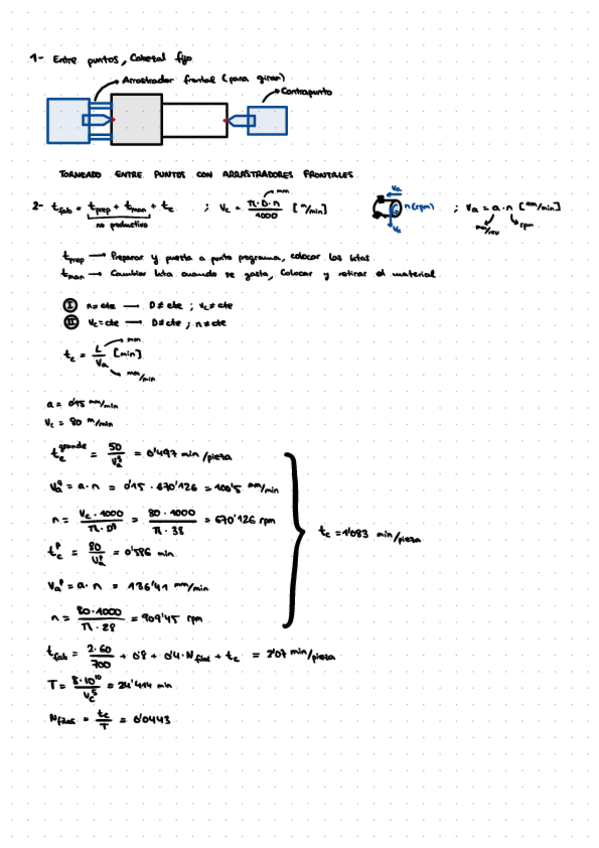 1- Entre puntos, Cabezal fijo
Arrastrador frontal (para girar)
Contrapunto
TORNEADO ENTRE PUNTOS CON ARRASTRADORES FRONTALES
2- t_fab = t_prep + t_man + t_c ; V_c = π·D·n / 1000 [m/min] ; V_a = a·n [mm/min]
mm
no productivo
n (rpm)
V_a
V_c
mm/rev
rpm
t_prep → Preparar y puesta a punto programa, colocar las htas
t_man → Cambiar hta cuando se gasta, Colocar y retirar el material.
I n = cte → D ≠ cte ; V_c ≠ cte
II V_c = cte → D ≠ cte ; n ≠ cte
t_c = L / V_a [min]
mm
mm/min
a = 0'15 mm/min
V_c = 80 m/min
t_c^grande = 50 / V_a^g = 0'497 min/pieza
V_a^g = a·n = 0'15 · 670'126 = 100'5 mm/min
n = V_c·1000 / π·D^g = 80·1000 / π·38 = 670'126 rpm
t_c^p = 80 / V_a^p = 0'586 min
t_c = 1'083 min/pieza
V_a^p = a·n = 136'41 mm/min
n = 80·1000 / π·28 = 909'45 rpm
t_fab = 2·60 / 700 + 0'8 + 0'4·N_filos + t_c = 2'07 min/pieza
T = 8·10^10 / V_c^5 = 24'414 min
N_filos = t_c / T = 0'0443